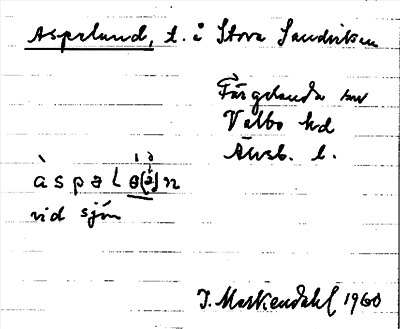 Aspelund, t. i Stora Sandviken
Färgelanda sn
Valbo hd
Älvsb. l.
àspəl
vid sjön
J. Markendahl 1960